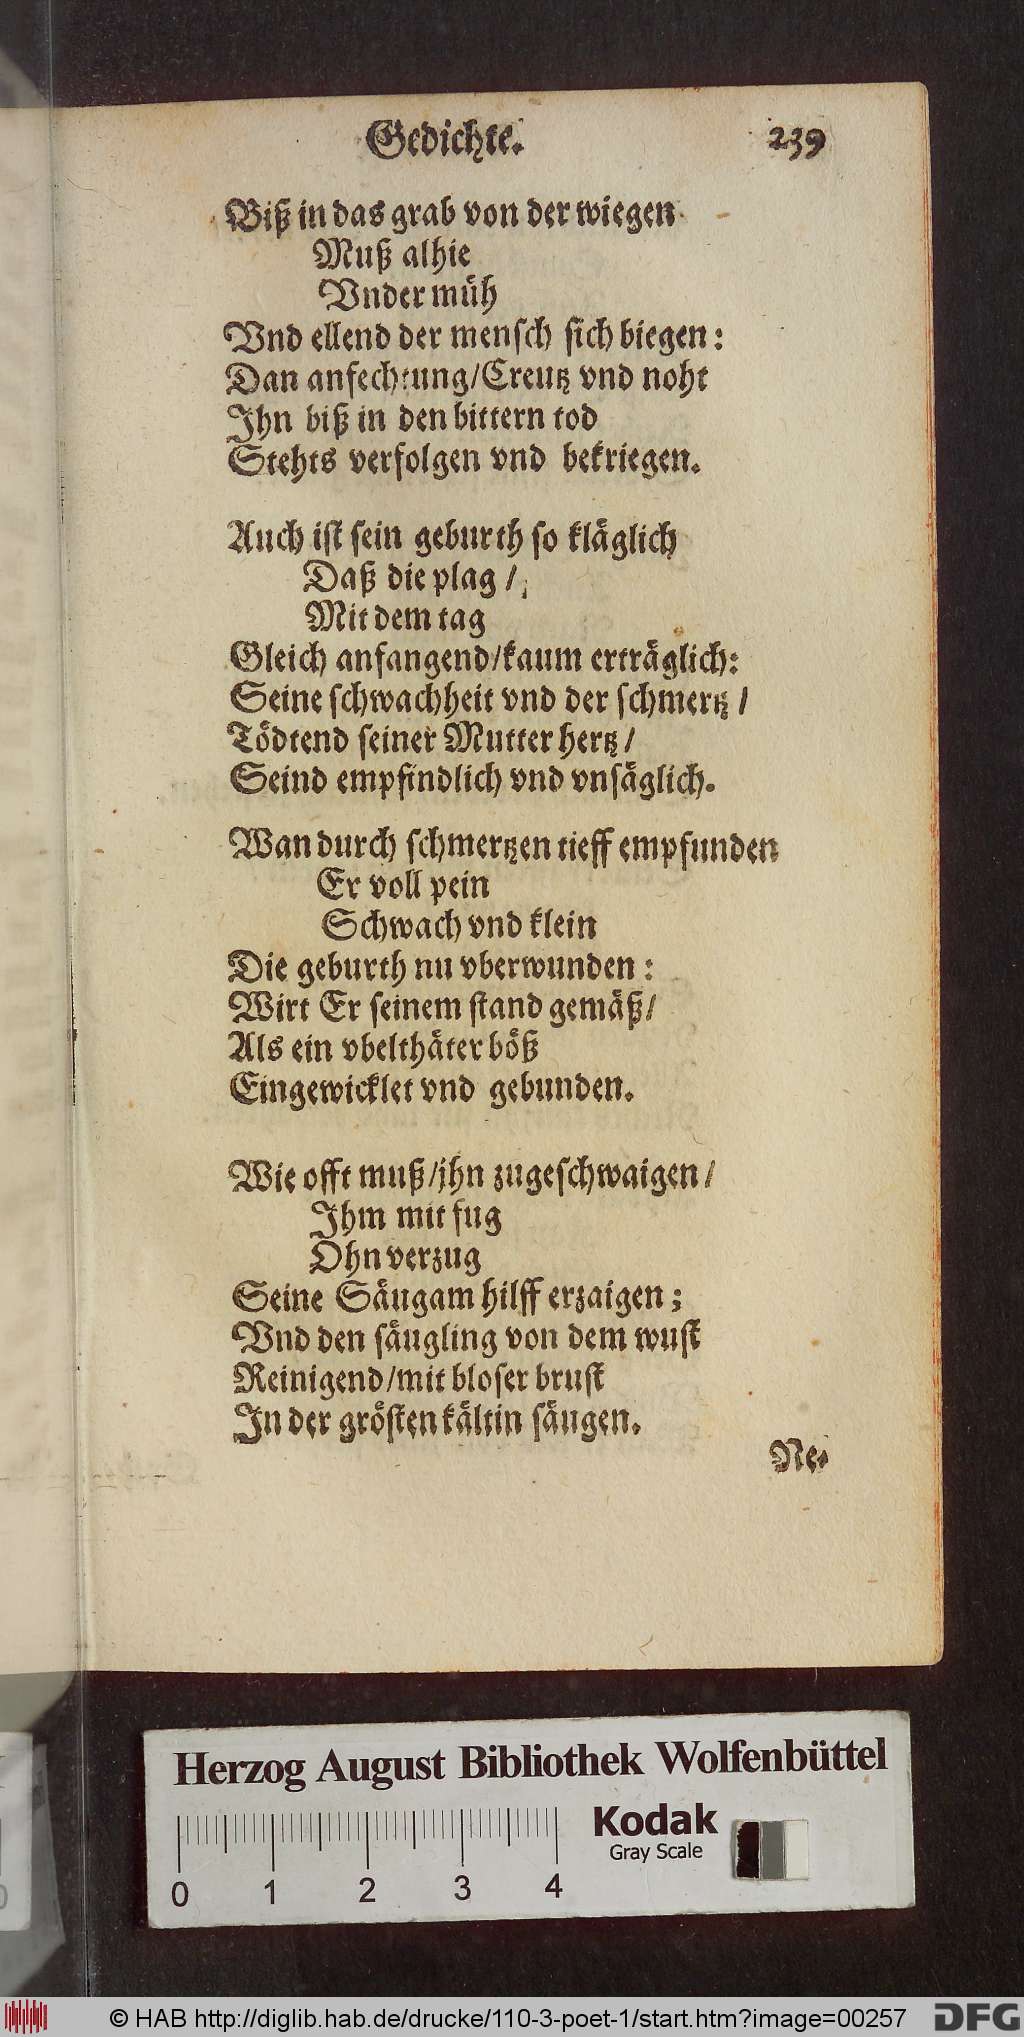 Gedichte. 239
Biß in das grab von der wiegen
Muß alhie
Vnder müh
Vnd ellend der mensch sich biegen:
Dan anfechtung/Creutz vnd noht
Ihn biß in den bittern tod
Stehts verfolgen vnd bekriegen.
Auch ist sein geburth so kläglich
Daß die plag /
Mit dem tag
Gleich anfangend/kaum erträglich:
Seine schwachheit vnd der schmertz /
Tödtend seiner Mutter hertz /
Seind empfindlich vnd vnsäglich.
Wan durch schmertzen tieff empfunden
Er voll pein
Schwach vnd klein
Die geburth nu vberwunden:
Wirt Er seinem stand gemäß/
Als ein vbelthäter böß
Eingewicklet vnd gebunden.
Wie offt muß/jhn zugeschwaigen/
Ihm mit fug
Ohn verzug
Seine Säugam hilff erzaigen;
Vnd den säugling von dem wust
Reinigend/mit bloser brust
In der grösten kältin säugen.
Ne-
Herzog August Bibliothek Wolfenbüttel
Kodak
Gray Scale
0 1 2 3 4
© HAB http://diglib.hab.de/drucke/110-3-poet-1/start.htm?image=00257 DFG